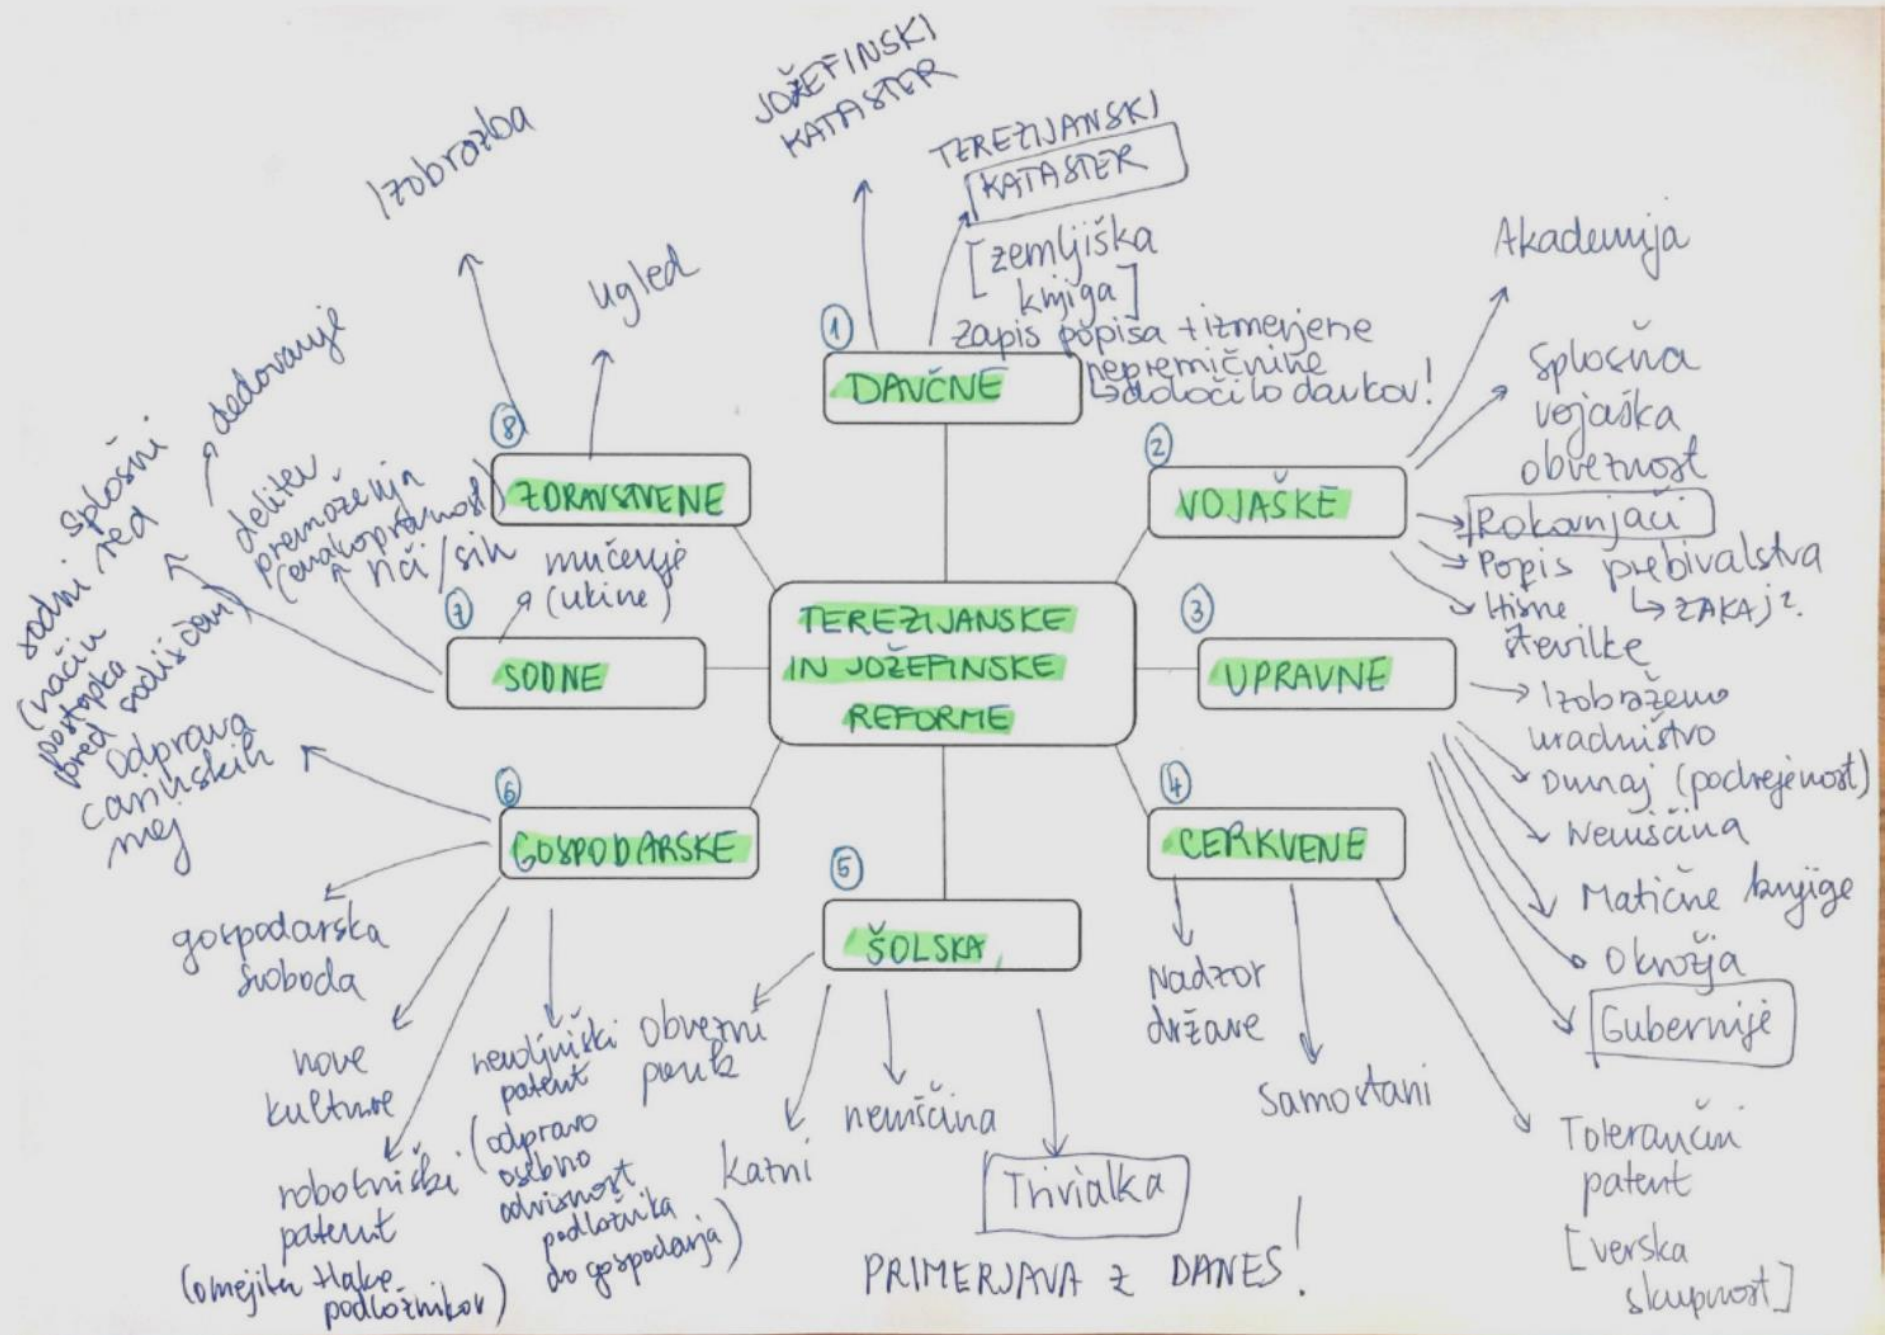 TEREZIJANSKE
IN JOŽEFINSKE
REFORME
1
DAVČNE
JOŽEFINSKI
KATASTER
TEREZIJANSKI
KATASTER
[zemljiška
knjiga]
zapis popisa + izmerjene
nepremičnine
↳ določilo davkov!
2
VOJAŠKE
Akademija
Splošna
vojaška
obveznost
Rokovnjači
Popis prebivalstva
↳ ZAKAJ?
Hišne
številke
3
UPRAVNE
Izobraženo
uradništvo
Dunaj (podrejenost)
Nemščina
Matične knjige
Okrožja
Gubernije
4
CERKVENE
Nadzor
države
Samostani
Tolerančni
patent
[verska
skupnost]
5
ŠOLSKA
Obvezni
pouk
kazni
nemščina
Trivialka
PRIMERJAVA Z DANES!
6
GOSPODARSKE
Odprava
carinskih
mej
gospodarska
svoboda
nove
kulture
robotniški
patent
(omejitev tlake
podložnikov)
nevoljniški
patent
(odpravo
osebno
odvisnost
podložnika
do gospodarja)
7
SODNE
splošni
sodni red
(način
postopka
pred sodiščem)
dedovanje
delitev
premoženja
(enakopravnost)
hči/sin
mučenje
(ukine)
8
ZDRAVSTVENE
Izobrazba
ugled